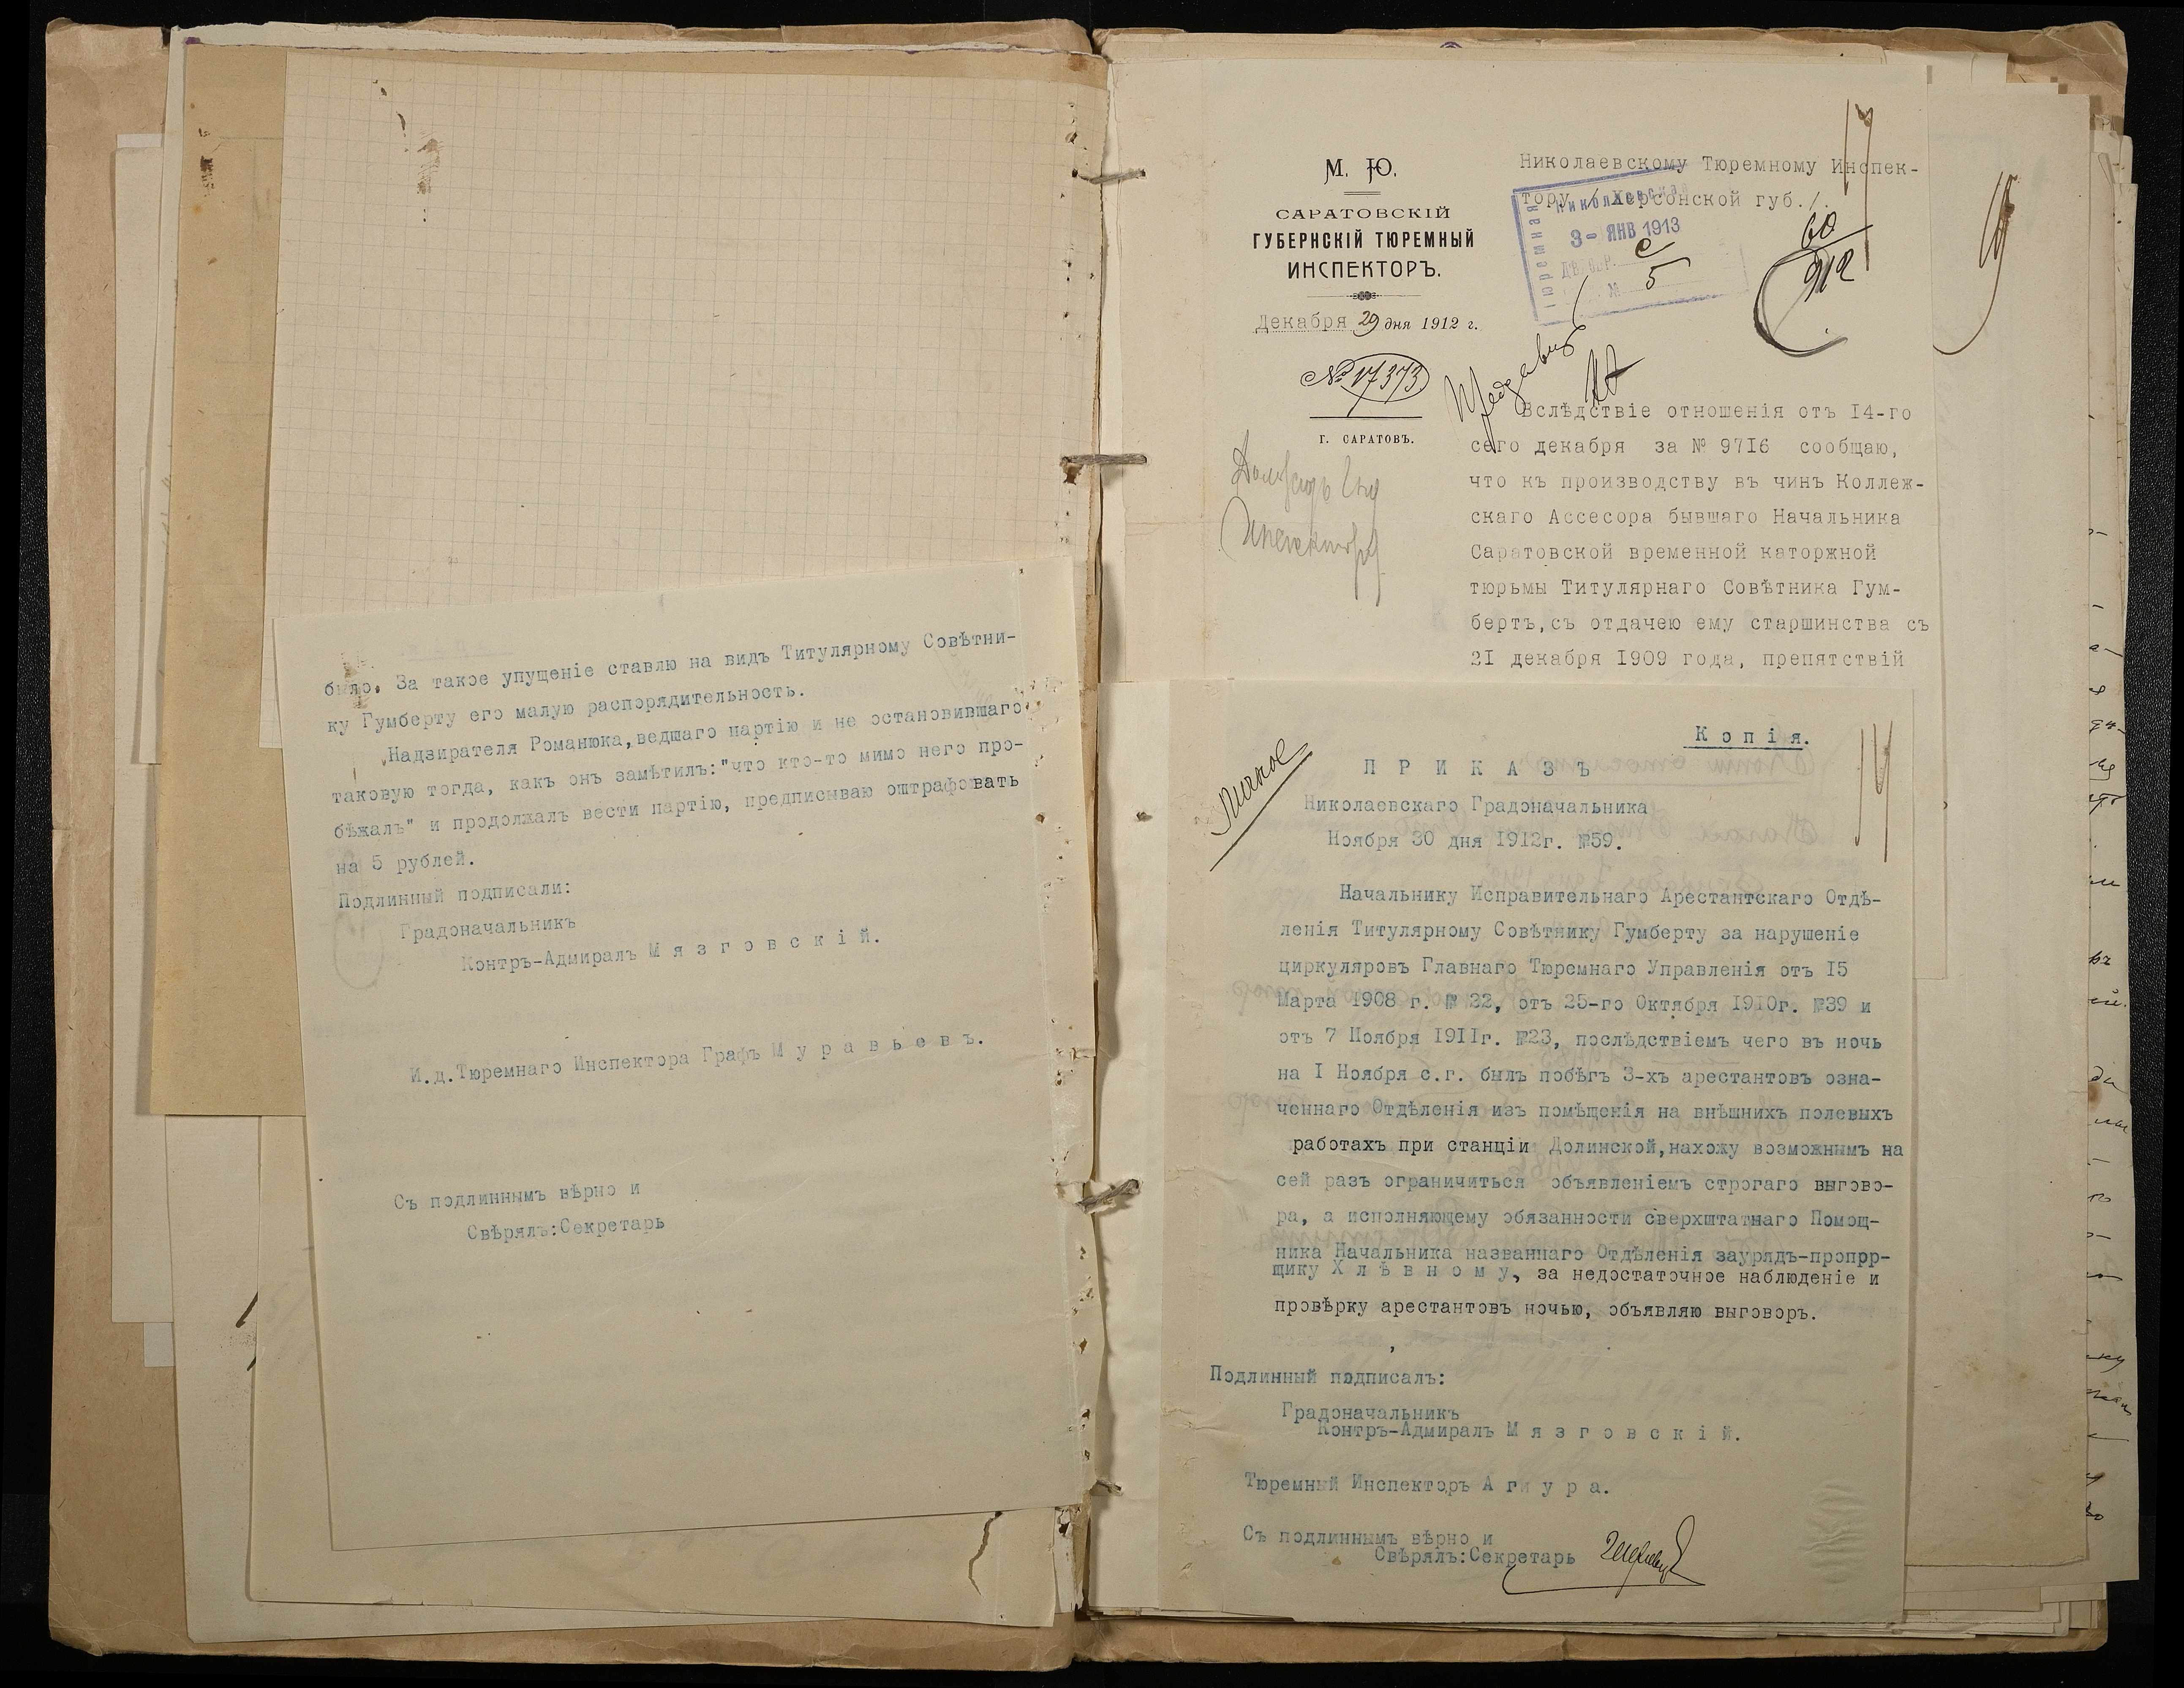 было. За такое упущеніе ставлю на видъ Титулярному Совѣтни-
ку Гумберту его малую распорядительность.
Надзирателя Романюка,ведшаго партію и не остановившаго
таковую тогда, какъ онъ замѣтилъ:"что кто-то мимо него про-
бѣжалъ" и продолжалъ вести партію, предписываю оштрафовать
на 5 рублей.
Подлинный подписали:
Градоначальникъ
Контръ-Адмиралъ М я з г о в с к і й.
И.д.Тюремнаго Инспектора Графъ М у р а в ь е в ъ.
Съ подлиннымъ вѣрно и
Свѣрялъ:Секретарь
М. Ю.
САРАТОВСКІЙ
ГУБЕРНСКІЙ ТЮРЕМНЫЙ
ИНСПЕКТОРЪ.
Декабря 29 дня 1912 г.
№ 17373
г. САРАТОВЪ.
Николаевскому Тюремному Инспек-
тору /Херсонской губ./.
3- ЯНВ 1913
5
60
912
17
Вслѣдствіе отношенія отъ I4-го
сего декабря за № 97I6 сообщаю,
что къ производству въ чинъ Коллеж-
скаго Ассесора бывшаго Начальника
Саратовской временной каторжной
тюрьмы Титулярнаго Совѣтника Гум-
бертъ,съ отдачею ему старшинства съ
2I декабря I909 года, препятствій
Копія.
14
Личное
П Р И К А З Ъ
Николаевскаго Градоначальника
Ноября 30 дня I9I2г. №59.
Начальнику Исправительнаго Арестантскаго Отдѣ-
ленія Титулярному Совѣтнику Гумберту за нарушеніе
циркуляровъ Главнаго Тюремнаго Управленія отъ I5
Марта I908 г. № 22, отъ 25-го Октября I9I0г. №39 и
отъ 7 Ноября I9IIг. №23, послѣдствіемъ чего въ ночь
на I Ноября с.г. былъ побѣгъ 3-хъ арестантовъ озна-
ченнаго Отдѣленія изъ помѣщенія на внѣшнихъ полевыхъ
работахъ при станціи Долинской,нахожу возможнымъ на
сей разъ ограничиться объявленіемъ строгаго выгово-
ра, а исполняющему обязанности сверхштатнаго Помощ-
ника Начальника названнаго Отдѣленія заурядъ-пропрр-
щику Х л ѣ в н о м у, за недостаточное наблюденіе и
провѣрку арестантовъ ночью, объявляю выговоръ.
Подлинный подписалъ:
Градоначальникъ
Контръ-Адмиралъ М я з г о в с к і й.
Тюремный Инспекторъ А г и у р а.
Съ подлиннымъ вѣрно и
Свѣрялъ:Секретарь